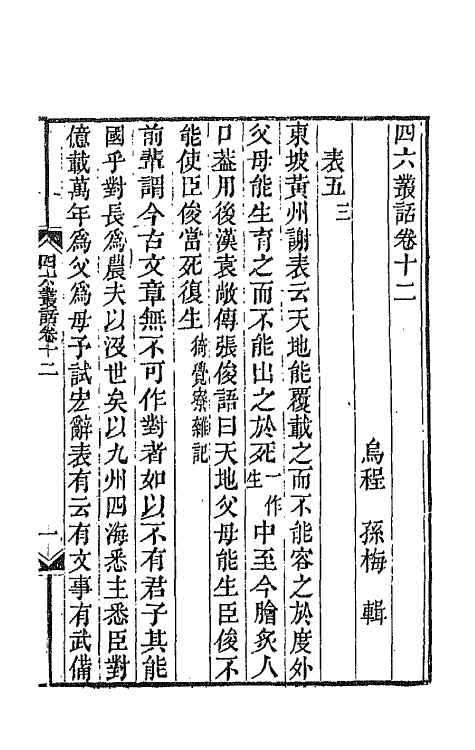 四六叢話卷十二
烏程 孫梅 輯
表五 三
東坡黃州謝表云天地能覆載之而不能容之於度外
父母能生育之而不能出之於死一作生中至今膾炙人
口蓋用後漢袁敞傳張俊語曰天地父母能生臣俊不
能使臣俊當死復生猗覺寮雜記
前輩謂今古文章無不可作對者如以不有君子其能
國乎對長爲農夫以沒世矣以九州四海悉主悉臣對
億載萬年爲父爲母予試宏辭表有云有文事有武備
四六叢話卷十二 一